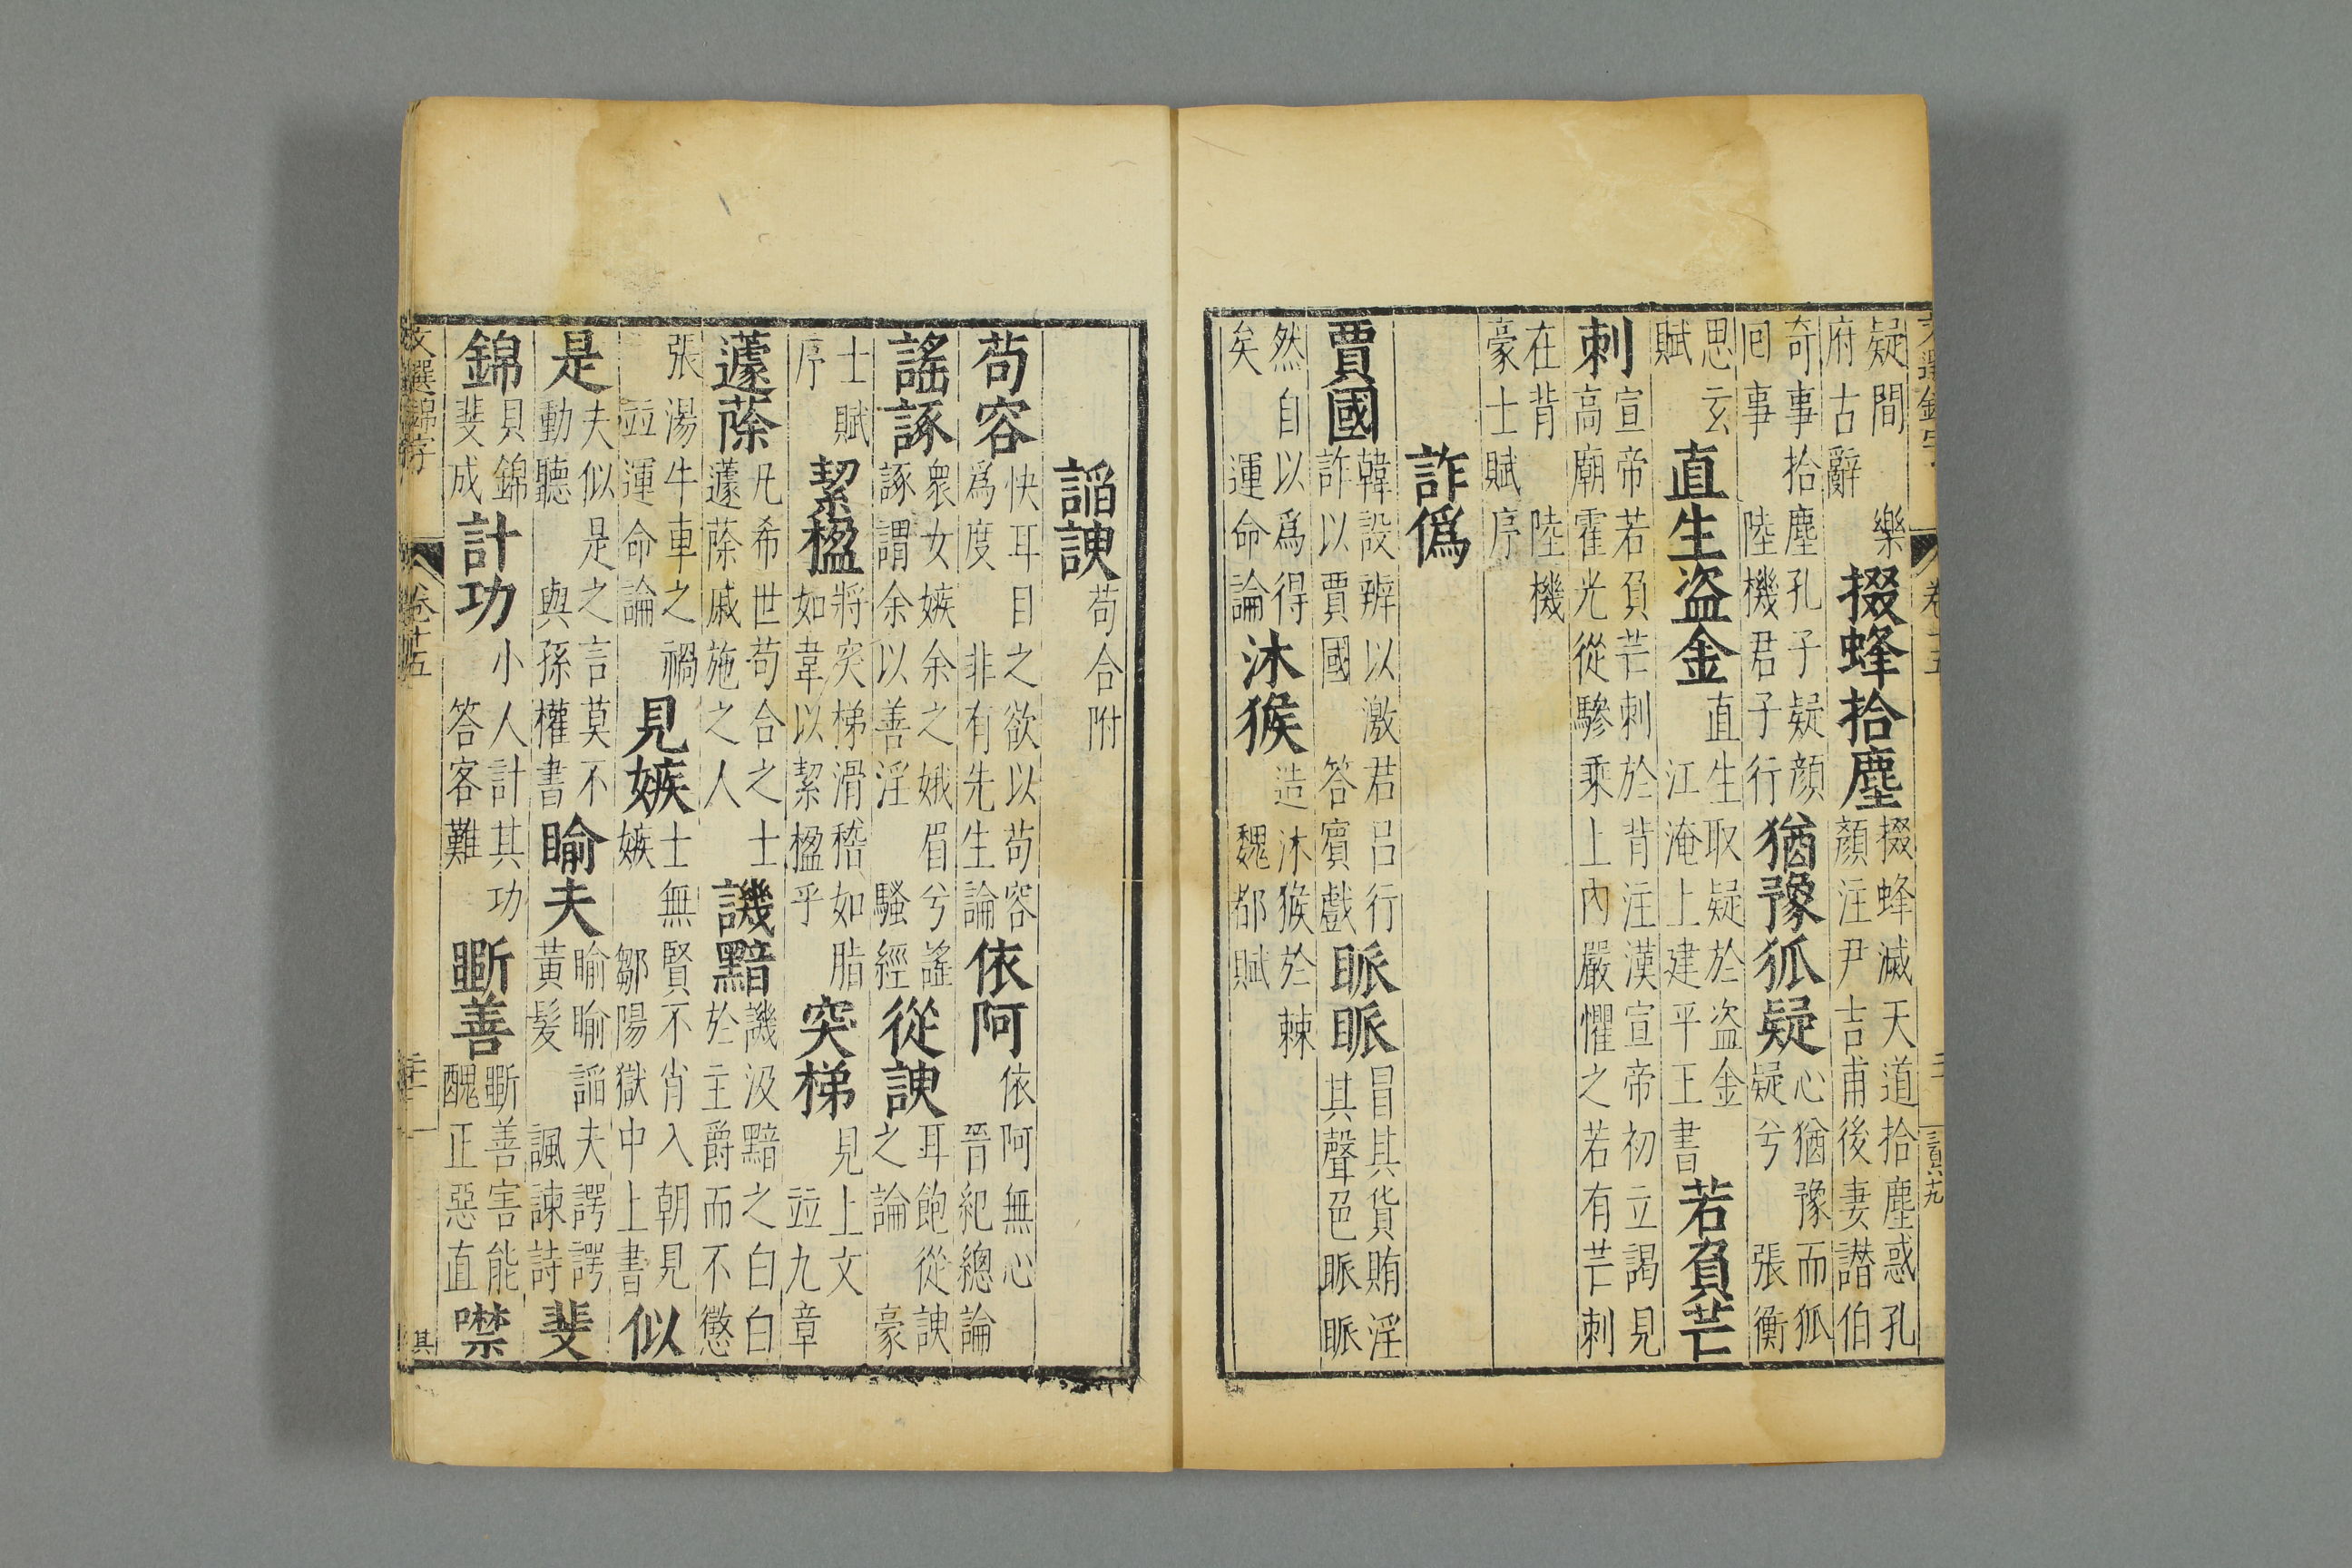 卷十五
疑間樂府古辭掇蜂拾塵掇蜂滅天道拾塵惑孔顏注尹吉甫後妻譖伯
奇事拾塵孔子疑顏囘事陸機君子行猶豫狐疑心猶豫而狐疑兮張衡
思玄賦直生盜金直生取疑於盜金江淹上建平王書若負芒
刺宣帝若負芒刺於背注漢宣帝初立謁見高廟霍光從驂乘上內嚴懼之若有芒刺
在背陸機豪士賦序
詐僞
賈國韓設辨以激君呂行詐以賈國答賓戲眽眽冒其貨賄淫其聲色眽眽
然自以爲得矣運命論沐猴造沐猴於棘魏都賦
諂諛苟合附
苟容快耳目之欲以苟容爲度非有先生論依阿依阿無心晉紀總論
謠諑衆女嫉余之娥眉兮謠諑謂余以善淫騷經從諛耳飽從諛之論豪
士賦序絜楹將突梯滑稽如脂如韋以絜楹乎突梯見上文竝九章
蘧蒢凡希世苟合之士蘧蒢戚施之人譏黯譏汲黯之白白於主爵而不懲
張湯牛車之禍竝運命論見嫉士無賢不肖入朝見嫉鄒陽獄中上書似
是夫似是之言莫不動聽與孫權書睮夫睮睮諂夫諤諤黃髮諷諫詩斐
錦貝錦斐成計功小人計其功答客難善善害能醜正惡直噤
文選錦字 卷十五 其